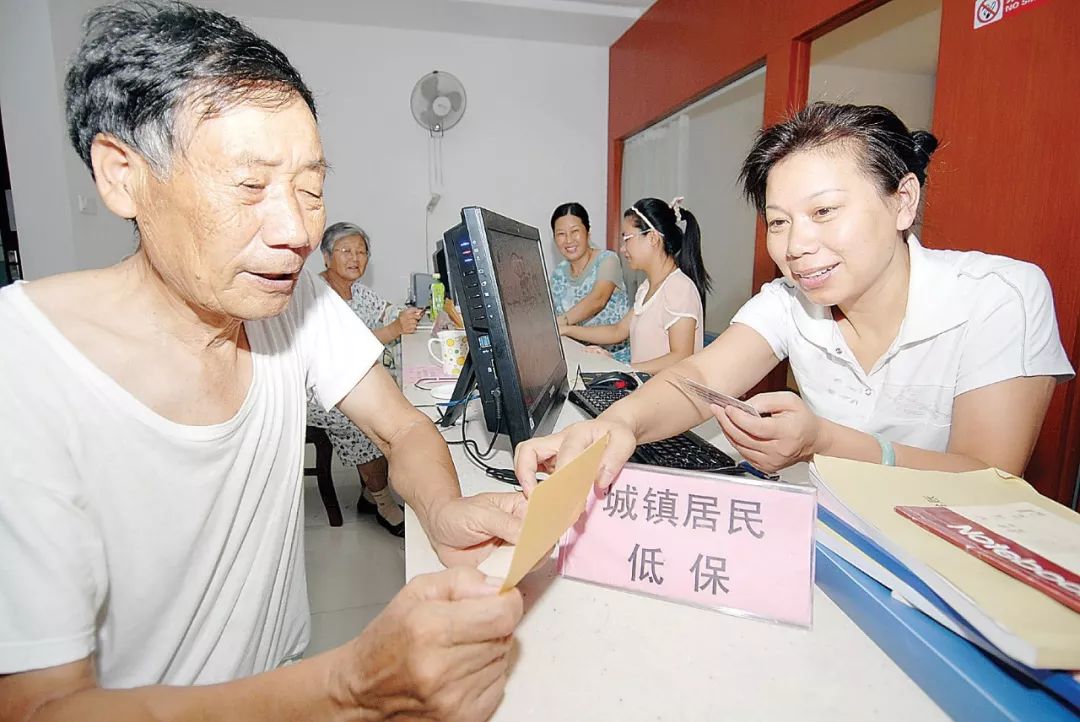 NO SM
城镇居民
低保
Notebook